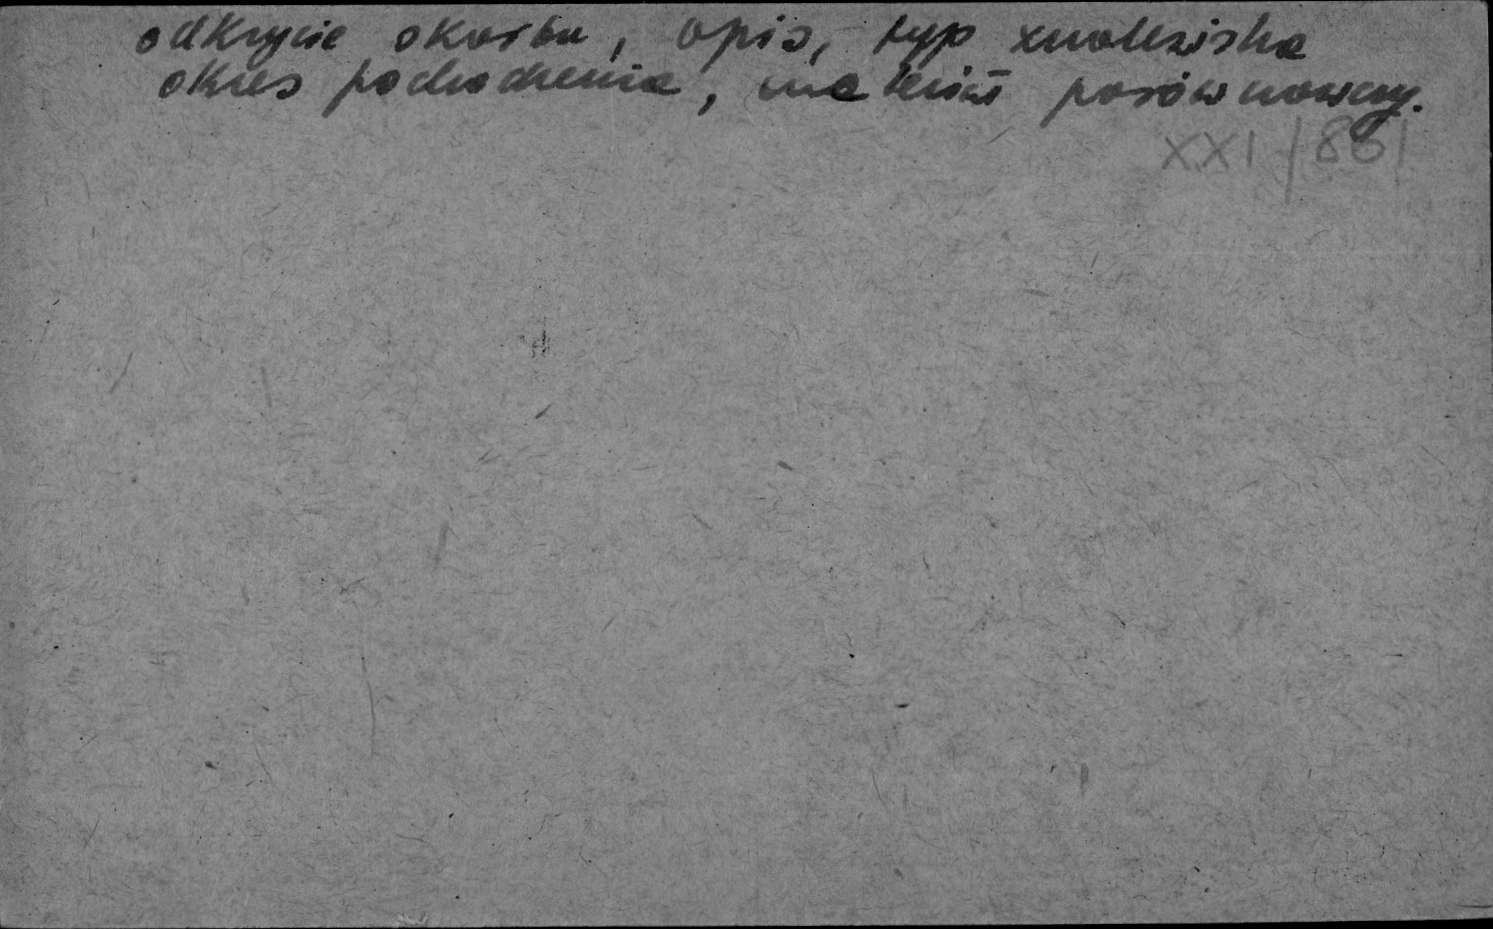 odkrycie skarbu, opis, typ znaleziska
okres pochodzenia, materiał porównawczy.
XXI/861